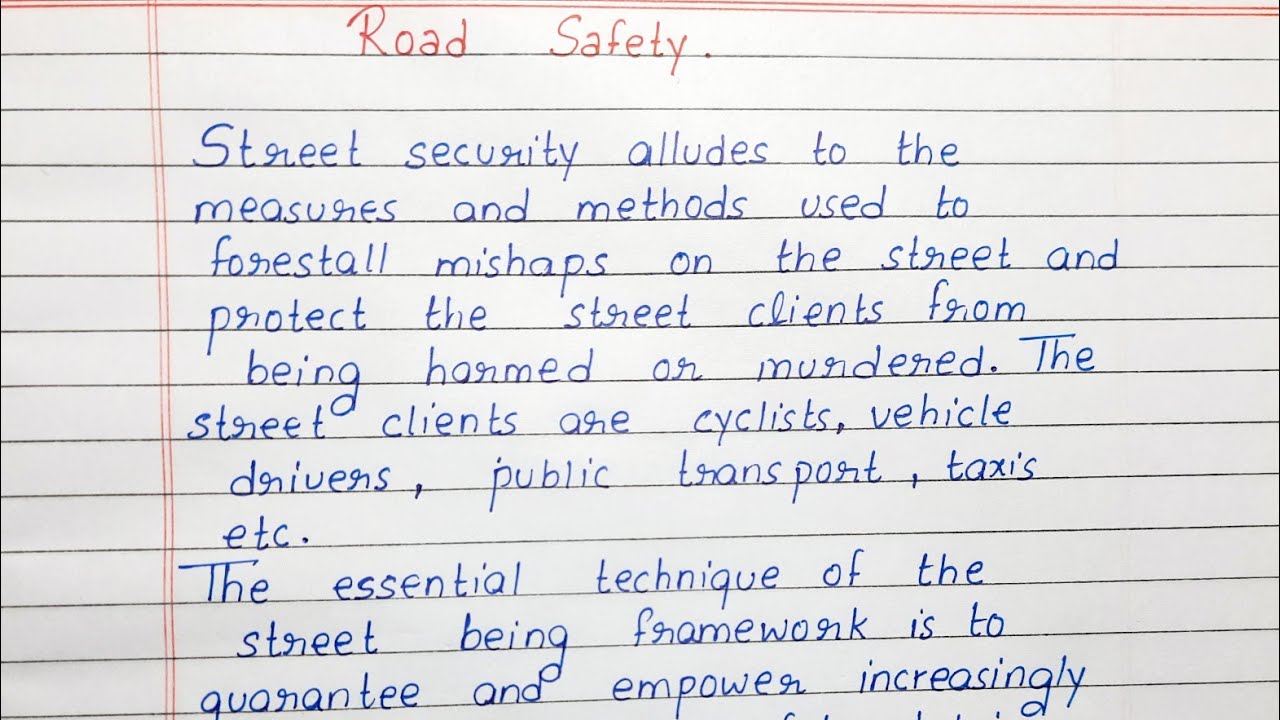 Road Safety.
Street security alludes to the
measures and methods used to
forestall mishaps on the street and
protect the street clients from
being harmed or murdered. The
street clients are cyclists, vehicle
drivers, public transport, taxis
etc.
The essential technique of the
street being framework is to
guarantee and empower increasingly